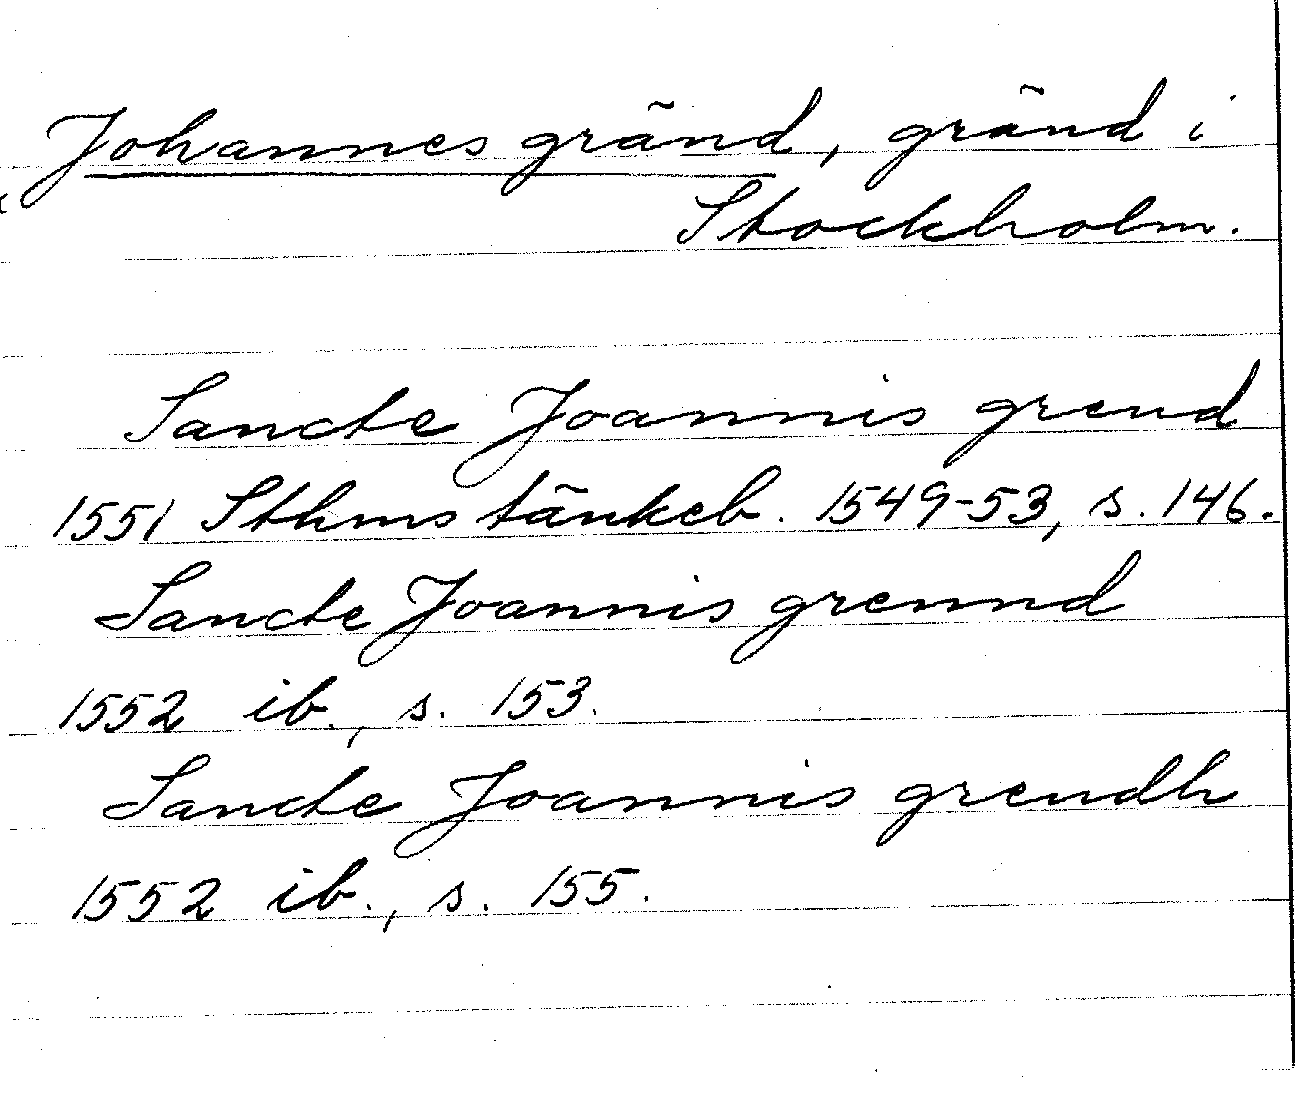 Johannes gränd, gränd i
Stockholm.
Sancte Joannis grend
1551 Sthms tänkeb. 1549-53, s. 146.
Sancte Joannis grennd
1552 ib., s. 153.
Sancte Joannis grendh
1552 ib., s. 155.